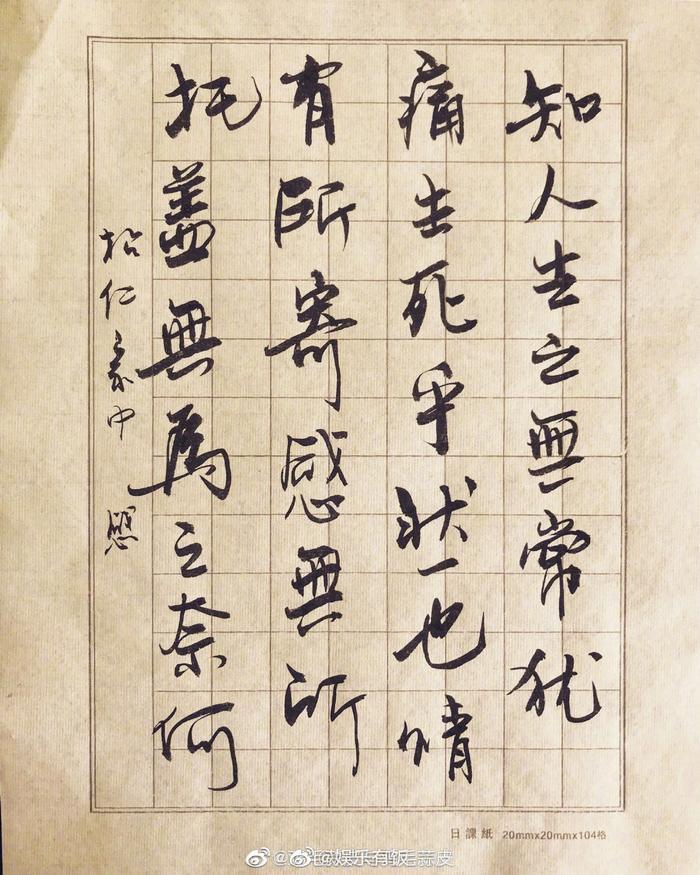 知人生之無常犹
痛生死乎状一也情
有所寄感無所
托蓋無為之奈何
於仁豪中 照
日課紙 20mmx20mmx104格
娱乐有饭
蒜皮